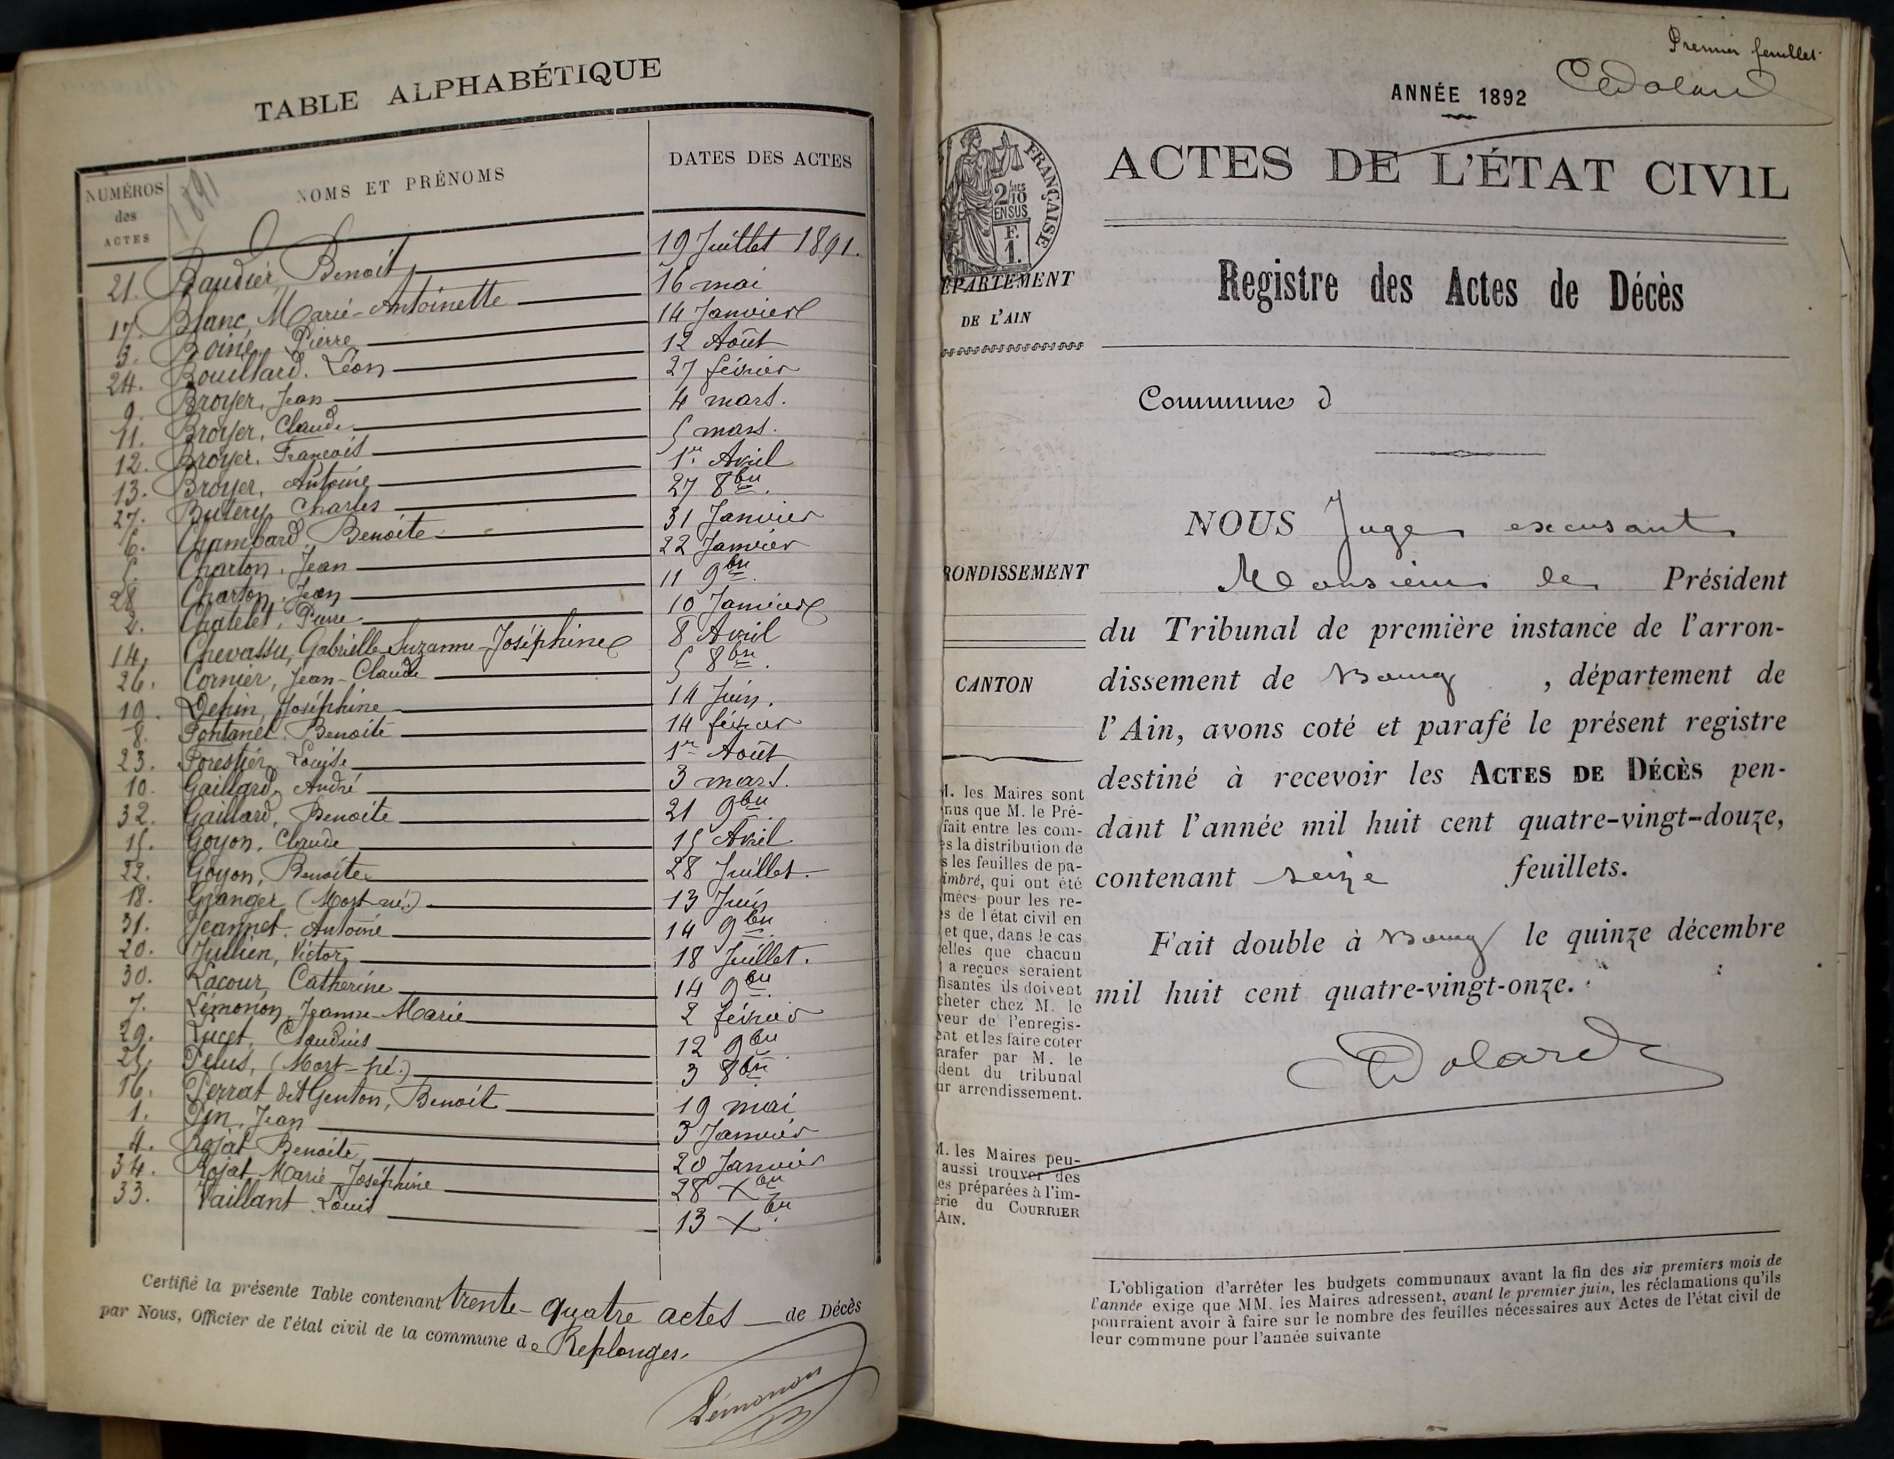 TABLE ALPHABÉTIQUE
NUMÉROS des ACTES
1891
NOMS ET PRÉNOMS
DATES DES ACTES
21. Baudier, Benoit 19 Juillet 1891.
17. Blanc, Marie-Antoinette 16 mai
3. Boine, Pierre 14 Janvier
24. Bouillard, Léon 12 Août
9. Broyer, Jean 27 février
11. Broyer, Claude 4 mars.
12. Broyer, François 5 mars.
13. Broyer, Antoine 1er Avril
27. Butery, Charles 27 8bre.
6. Chambard, Benoite 31 Janvier
5. Charton, Jean 22 Janvier
28. Charton, Jean 11 9bre.
2. Chatelet, Pierre 10 Janvier
14. Chevassu, Gabrielle Suzanne-Joséphine 8 Avril
26. Cornier, Jean-Claude 5 8bre.
19. Depin, Joséphine 14 Juin.
8. Fontanel, Benoite 14 février
23. Forestier, Louise 1er Août
10. Gaillard, André 3 mars.
32. Gaillard, Benoite 21 9bre
15. Goyon, Claude 15 Avril
22. Goyon, Benoite 28 Juillet.
18. Granger (Mort-né.) 13 Juin
31. Jeannet, Antoine 14 9bre.
20. Jullien, Victor 18 Juillet.
30. Lacour, Catherine 14 9bre.
7. Lémonon, Jeanne-Marie 2 février
29. Lucet, Claudius 12 9bre.
25. Pelus, (Mort-né.) 3 8bre
16. Perrat dit Genton, Benoit 19 mai
1. Pin, Jean 3 Janvier
4. Rojat, Benoite 20 Janvier
34. Rojat, Marie-Joséphine 28 Xbre
33. Vaillant, Louis 13 Xbre.
Certifié la présente Table contenant trente-quatre actes de Décès
par Nous, Officier de l'état civil de la commune de Replonges.
Lémonon
Premier feuillet
CDolard
ANNÉE 1892
ACTES DE L'ÉTAT CIVIL
FRANÇAISE
2/10
EN SUS
F.
1.
Registre des Actes de Décès
ÉPARTEMENT
DE L'AIN
Commune d
NOUS Juge excusant
Monsieur le Président
RONDISSEMENT
du Tribunal de première instance de l'arron-
dissement de Bourg , département de
CANTON
l'Ain, avons coté et parafé le présent registre
destiné à recevoir les ACTES DE DÉCÈS pen-
dant l'année mil huit cent quatre-vingt-douze,
contenant seize feuillets.
Fait double à Bourg le quinze décembre
mil huit cent quatre-vingt-onze.
CDolard
M. les Maires sont
nus que M. le Pré-
fait entre les com-
es la distribution de
s les feuilles de pa-
imbré, qui ont été
mées pour les re-
s de l'état civil en
et que, dans le cas
elles que chacun
a reçues seraient
fisantes ils doivent
cheter chez M. le
veur de l'enregis-
ent et les faire coter
arafer par M. le
dent du tribunal
ur arrondissement.
M. les Maires peu-
aussi trouver des
es préparées à l'im-
erie du COURRIER
AIN.
L'obligation d'arrêter les budgets communaux avant la fin des six premiers mois de
l'année exige que MM. les Maires adressent, avant le premier juin, les réclamations qu'ils
pourraient avoir à faire sur le nombre des feuilles nécessaires aux Actes de l'état civil de
leur commune pour l'année suivante